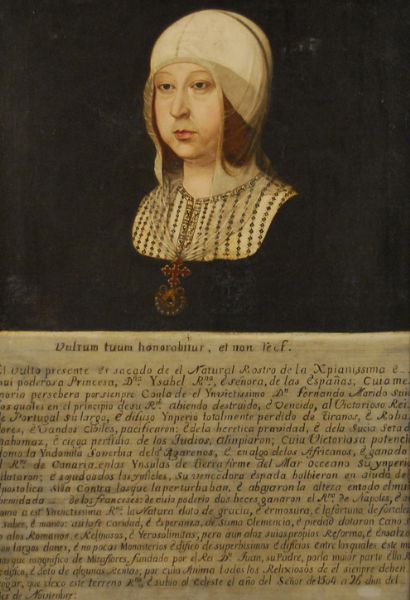 Vultum tuum honorabitur, et non
El Vulto presente es sacado de el Natural Rostro de la Xpianissima e
mui poderosa Princesa, Dña Ysabel Rna, e señora, de las Españas, Cuia me
moria persebera por siempre Con la de el Ynvictissimo Dn Fernando Marido suio
los quales en el principio de su Rno abiendo destruido, e Vencido, al Victorioso Rei
de Portugal su largo, e difuso Ynperio totalmente perdido de tiranos, e Roba
dores, e Vandos Civiles, pacificaron; e de la heretica pravidad, e de la Sucia Seta de
Mahomaz, e ciega perfidia de los Judios, alinpiaron; Cuia Victoriosa potencia
domo la Yndomita Sovervia de Agarenos, e en algo de los Africanos, e ganado
el Rno de Canaria, en las Ynsulas de tierra firme del Mar oceano su Ynperio
dilataron; e aiudandos los ynfieles, su vencedora espada bolbieron en aiuda de la
Apostolica Silla Contra los que la perturbaban, e abaxaron la alteza en todo el mundo
formidada de los franceses; de cuio poderio dos beces ganaron el Rno de Napoles, e asi
como a est Ynvictissima Rna la Natura doto de gracia, e ermosura, e la fortuna de fortaleza
saber, e mando: asi la fe Caridad, e Esperanza, de Sumo Clemencia, e piedad dotaron Canos
alos Romanos, e Relixiosos, e Yerosolimitas; pero aun alos suios propios Reformo, e ensalzo
con largos dones, e no pocos Monasterios edifico de superbissimos edificios, entre los quales este mui
mas que magnifico de Miraflores, fundado por el Rei Dn Juan, su Padre, por la maior parte ella Re
edifico, e doto de algunas Rentas, por cuia Anima todos los Relixiosos de el siempre deben
rogar, que dexo este terreno Rno, e subio al Celeste el año del Señor de 1504 a 26 dias del
Mes de Noviembre: